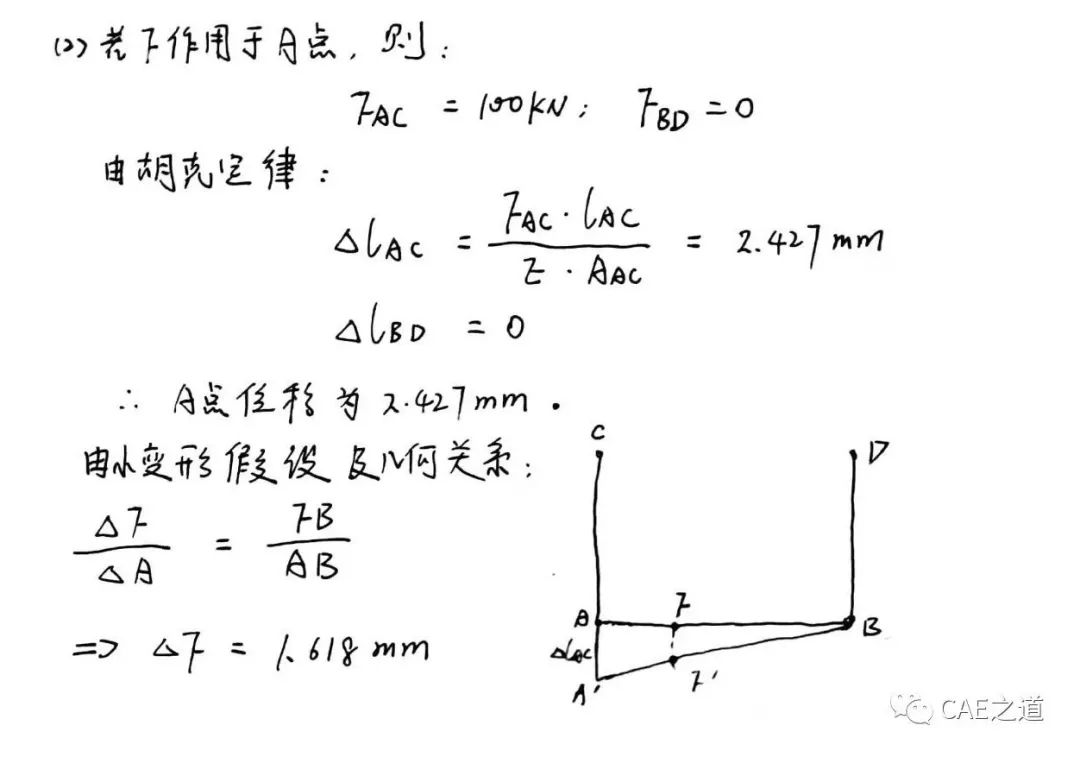 (2) 若F作用于A点，则：
F_AC = 100kN； F_BD = 0
由胡克定律：
Δl_AC = F_AC · l_AC / E · A_AC = 2.427 mm
Δl_BD = 0
∴ A点位移为2.427mm.
由小变形假设及几何关系：
ΔF / ΔA = FB / AB
=> ΔF = 1.618 mm
C
D
A
F
B
Δl_AC
A'
F'
CAE之道